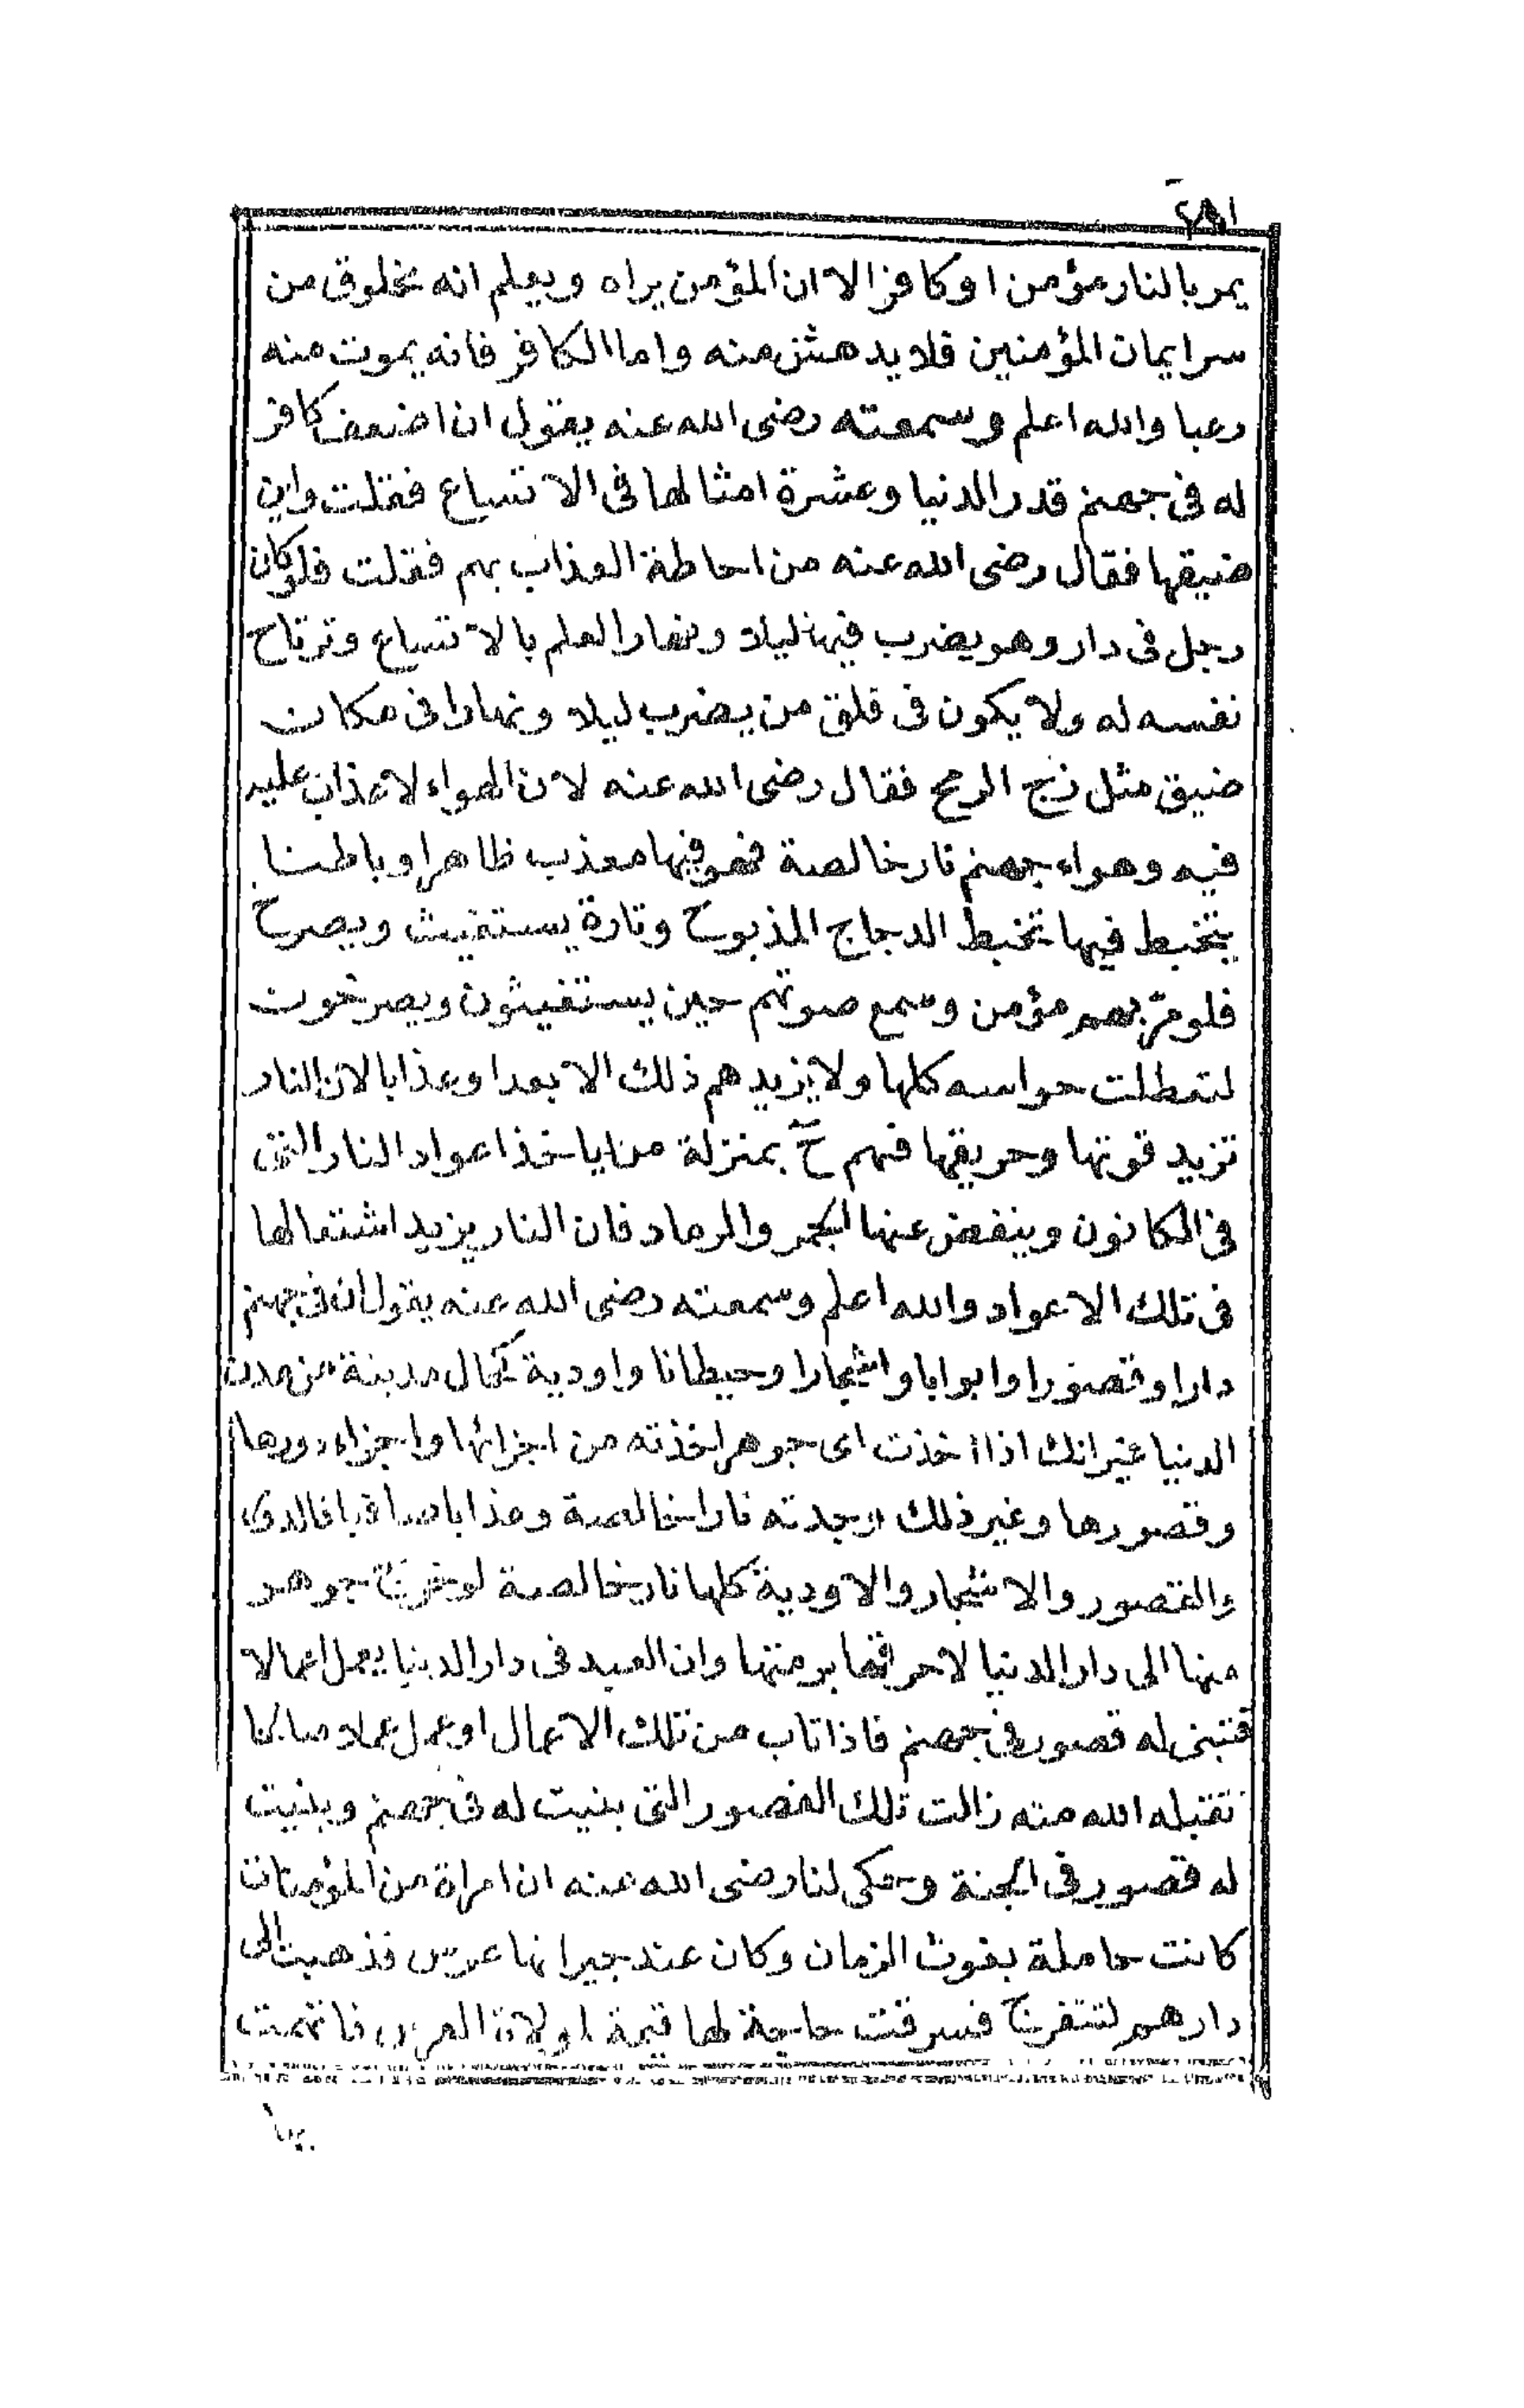 يمر بالنار مؤمن او كافر الا ان المؤمن يراه ويعلم انه مخلوق من
سر ايمان المؤمنين فلا يدهش منه واما الكافر فانه يموت منه
رعبا والله اعلم وسمعته رضى الله عنه يقول ان اضعف كافر
له فى جهنم قدر الدنيا وعشرة امثالها فى الاتساع فقلت واين
ضيقها فقال رضى الله عنه من احاطة العذاب بهم فقلت فلو كان
رجل فى دار وهو يضرب فيها ليلا ونهارا لعلم بالاتساع وترتاح
نفسه له ولا يكون فى قلق من يضرب ليلا ونهارا فى مكان
ضيق مثل زج الرمح فقال رضى الله عنه لان الهواء لا عذاب عليه
فيه وهواء جهنم نار خالصة فهو فيها معذب ظاهرا وباطنا
يتخبط فيها تخبط الدجاج المذبوح وتارة يستغيث ويصرخ
فلو مرّ بهم مؤمن وسمع صوتهم حين يستغيثون ويصرخون
لتعطلت حواسه كلها ولا يزيدهم ذلك الا بعدا وعذابا لان النار
تزيد قوتها وحريقها فهم ح بمنزلة من ياخذ اعواد النار التى
فى الكانون وينفض عنها الجمر والرماد فان النار يزيد اشتعالها
فى تلك الاعواد والله اعلم وسمعته رضى الله عنه يقول ان فى جهنم
دارا وقصورا وابوابا واشجارا وحيطانا واودية كحال مدينة من مدن
الدنيا غير انك اذا اخذت اى جوهر اخذته من اجزائها واجزاء دورها
وقصورها وغير ذلك وجدته نارا خالصة وعذابا صافيا فالدور
والقصور والاشجار والاودية كلها نار خالصة لو خرج جوهر
منها الى دار الدنيا لاحرقها برمتها وان العبد فى دار الدنيا يعمل اعمالا
فتبنى له قصور فى جهنم فاذا تاب من تلك الاعمال او عمل عملا صالحا
تقبله الله منه زالت تلك القصور التى بنيت له فى جهنم وبنيت
له قصور فى الجنة وحكى لنا رضى الله عنه ان امراة من المؤمنات
كانت حاملة بغوث الزمان وكان عند جيرانها عرس فذهبت الى
دارهم لتتفرج فسرقت حاجة لها قيمة العرس فاتهمت